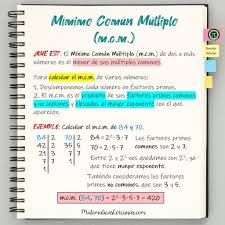 Mínimo Común Múltiplo
(m.c.m.)
¿QUÉ ES?: El Mínimo Común Múltiplo (m.c.m.) de dos o más
números es el menor de sus múltiplos comunes.
Para calcular el m.c.m. de varios números:
1. Descomponemos cada número en factores primos.
2. El m.c.m. es el producto de sus factores primos comunes
y no comunes elevados al mayor exponente con el que
aparecen.
EJEMPLO: Calcular el m.c.m. de 84 y 70.
84 2 70 2
42 2 35 5
21 3 7 7
7 7 1
1
84 = 2²·3·7
70 = 2·5·7
Los factores primos
comunes son 2 y 7.
Entre 2 y 2² nos quedamos con 2², que
tiene mayor exponente.
Y también consideramos los factores primos
no comunes, que son 3 y 5.
m.c.m. (84, 70) = 2²·3·5·7 = 420